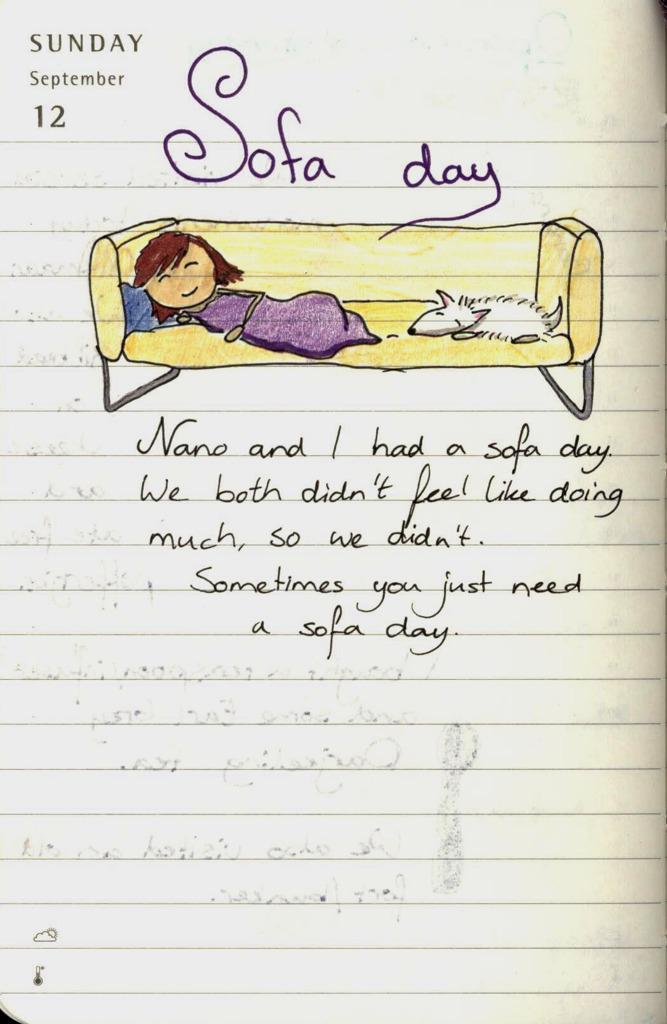 SUNDAY
September
12
Sofa day
Nano and I had a sofa day.
We both didn't feel like doing
much, so we didn't.
Sometimes you just need
a sofa day.